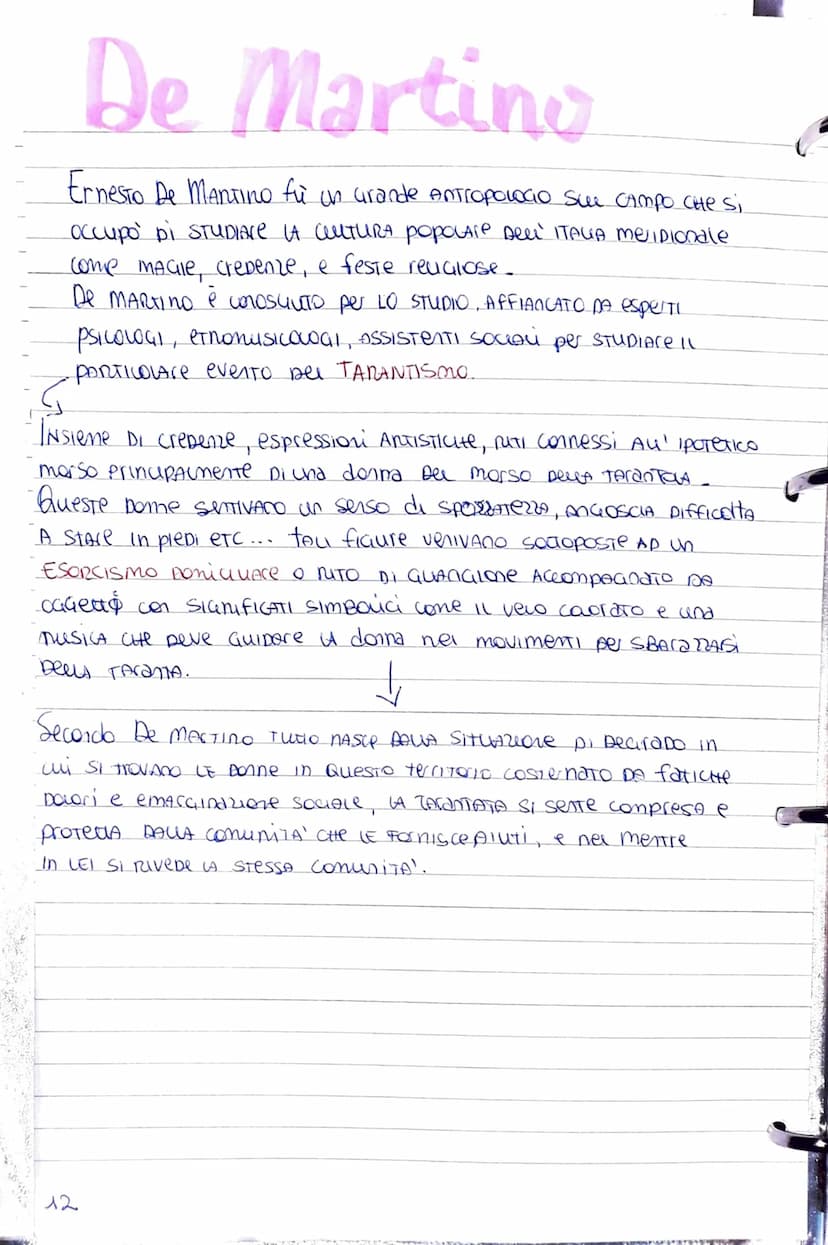 De Martino
Ernesto De Martino fù un grande antropologo sul campo che si
occupò di studiare la cultura popolare dell'Italia meridionale
come magie, credenze, e feste religiose.
De Martino è conosciuto per lo studio, affiancato da esperti
psicologi, etnomusicologi, assistenti sociali per studiare il
particolare evento del TARANTISMO.
Insieme di credenze, espressioni artistiche, riti connessi all'ipotetico
morso principalmente di una donna del morso della tarantola.
Queste donne sentivano un senso di spossatezza, angoscia difficoltà
a stare in piedi etc... tali figure venivano sottoposte ad un
ESORCISMO DOMICILIARE o rito di guarigione accompagnato da
oggetti con significati simbolici come il velo colorato e una
musica che deve guidare la donna nei movimenti per sbarazzasi
della taranta.
Secondo De Martino tutto nasce dalla situazione di degrado in
cui si trovano le donne in questo territorio costernato da fatiche
dolori e emarginazione sociale, la tarantata si sente compresa e
protetta dalla comunità che le fornisce aiuti, e nel mentre
in lei si rivede la stessa comunità.
12